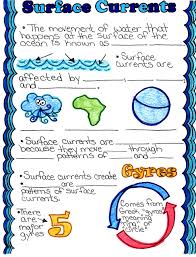 Surface Currents
• The movement of water that
happens at the surface of the
ocean is known as
• Surface
currents are
affected by
and
• Surface currents are
because they move through
patterns of
• Surface currents create Gyres
are
patterns of surface
currents.
• There
are
major
gyres
5
Comes from
Greek "gyros"
meaning
or
circle.